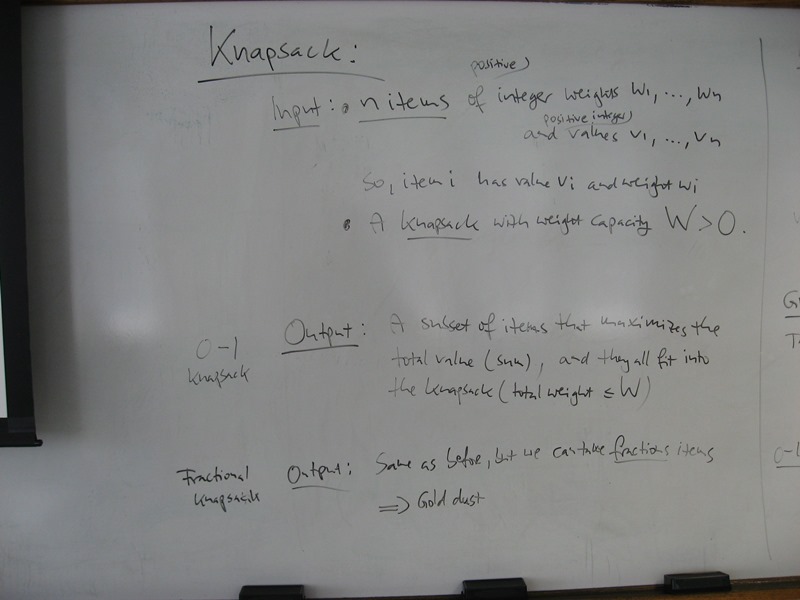 Knapsack:
positive)
Input: • n items of integer weights w1, ..., wn
positive integer)
and values v1, ..., vn
So, item i has value vi and weight wi
• A knapsack with weight capacity W > 0.
0-1 Knapsack
Output: A subset of items that maximizes the
total value (sum), and they all fit into
the knapsack (total weight ≤ W)
Fractional Knapsack
Output: Same as before, but we can take fractions items
⇒ Gold dust